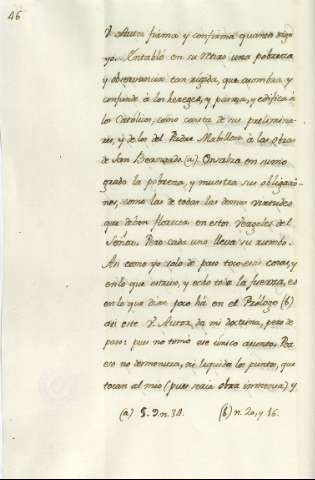 46
V. Autor firma y confirma quanto digo
yo. Entabló en su Mrio una pobreza
y observancia tan rigida, que asombra y
confunde à los hereges, y pasma, y edifica à
los Catolicos, como consta de sus prelimina-
res, y de los del Padre Mabillon à las obras
de San Bernardo (a). Ensalza en sumo
grado la pobreza, y muestra sus obligacio-
nes, como las de todas las demas virtudes
que deben florecer en estos Vergeles del
Señor. Pero cada uno lleva su rumbo.
Asi como yo solo de paso toco esas cosas, y
en lo que estrivo, y echo toda la fuerza, es
en lo que dixe poco há en el Prólogo (b)
asi este V. Autor, da mi doctrina, pero de
paso: pues no tomó ese único asunto. Por
eso no desmenuza, ni liquida los puntos, que
tocan al mio (pues seria obra inmensa) y
(a) §. 9 n. 38. (b) n. 20, y 16.